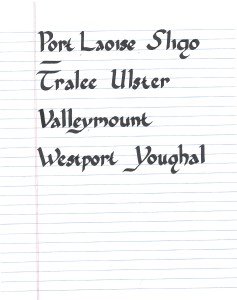 Port Laoise Sligo
Tralee Ulster
Valleymount
Westport Youghal